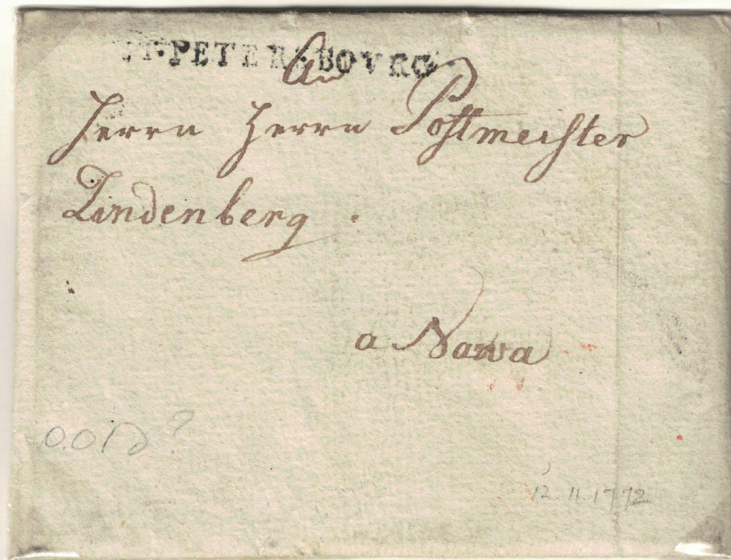 ST.PETERSBOVRG
An
Herrn Herrn Postmeister
Lindenberg.
a Narva
12.11.1772